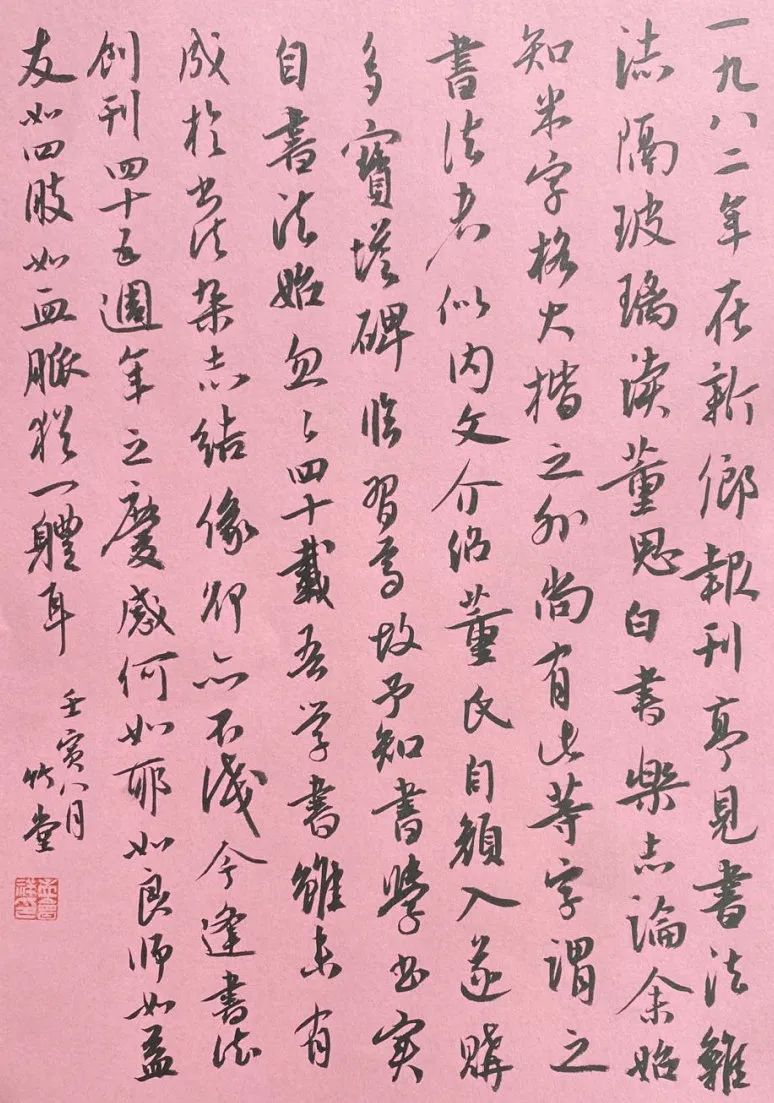 一九八二年在新鄉報刊亭見書法雜
誌隔玻璃讀董思白書樂志論余始
知米字格大楷之外尚有此等字謂之
書法者似內文介紹董氏自顏入遂購
多寶塔碑臨習焉故予知書學書实
自書法始忽々四十載吾学書雖未有
成於书法杂志结缘卻亦不淺今逢書法
創刊四十五週年之慶感何如耶如良師如益
友如四肢如血脈猶一體耳
壬寅八月
竹堂